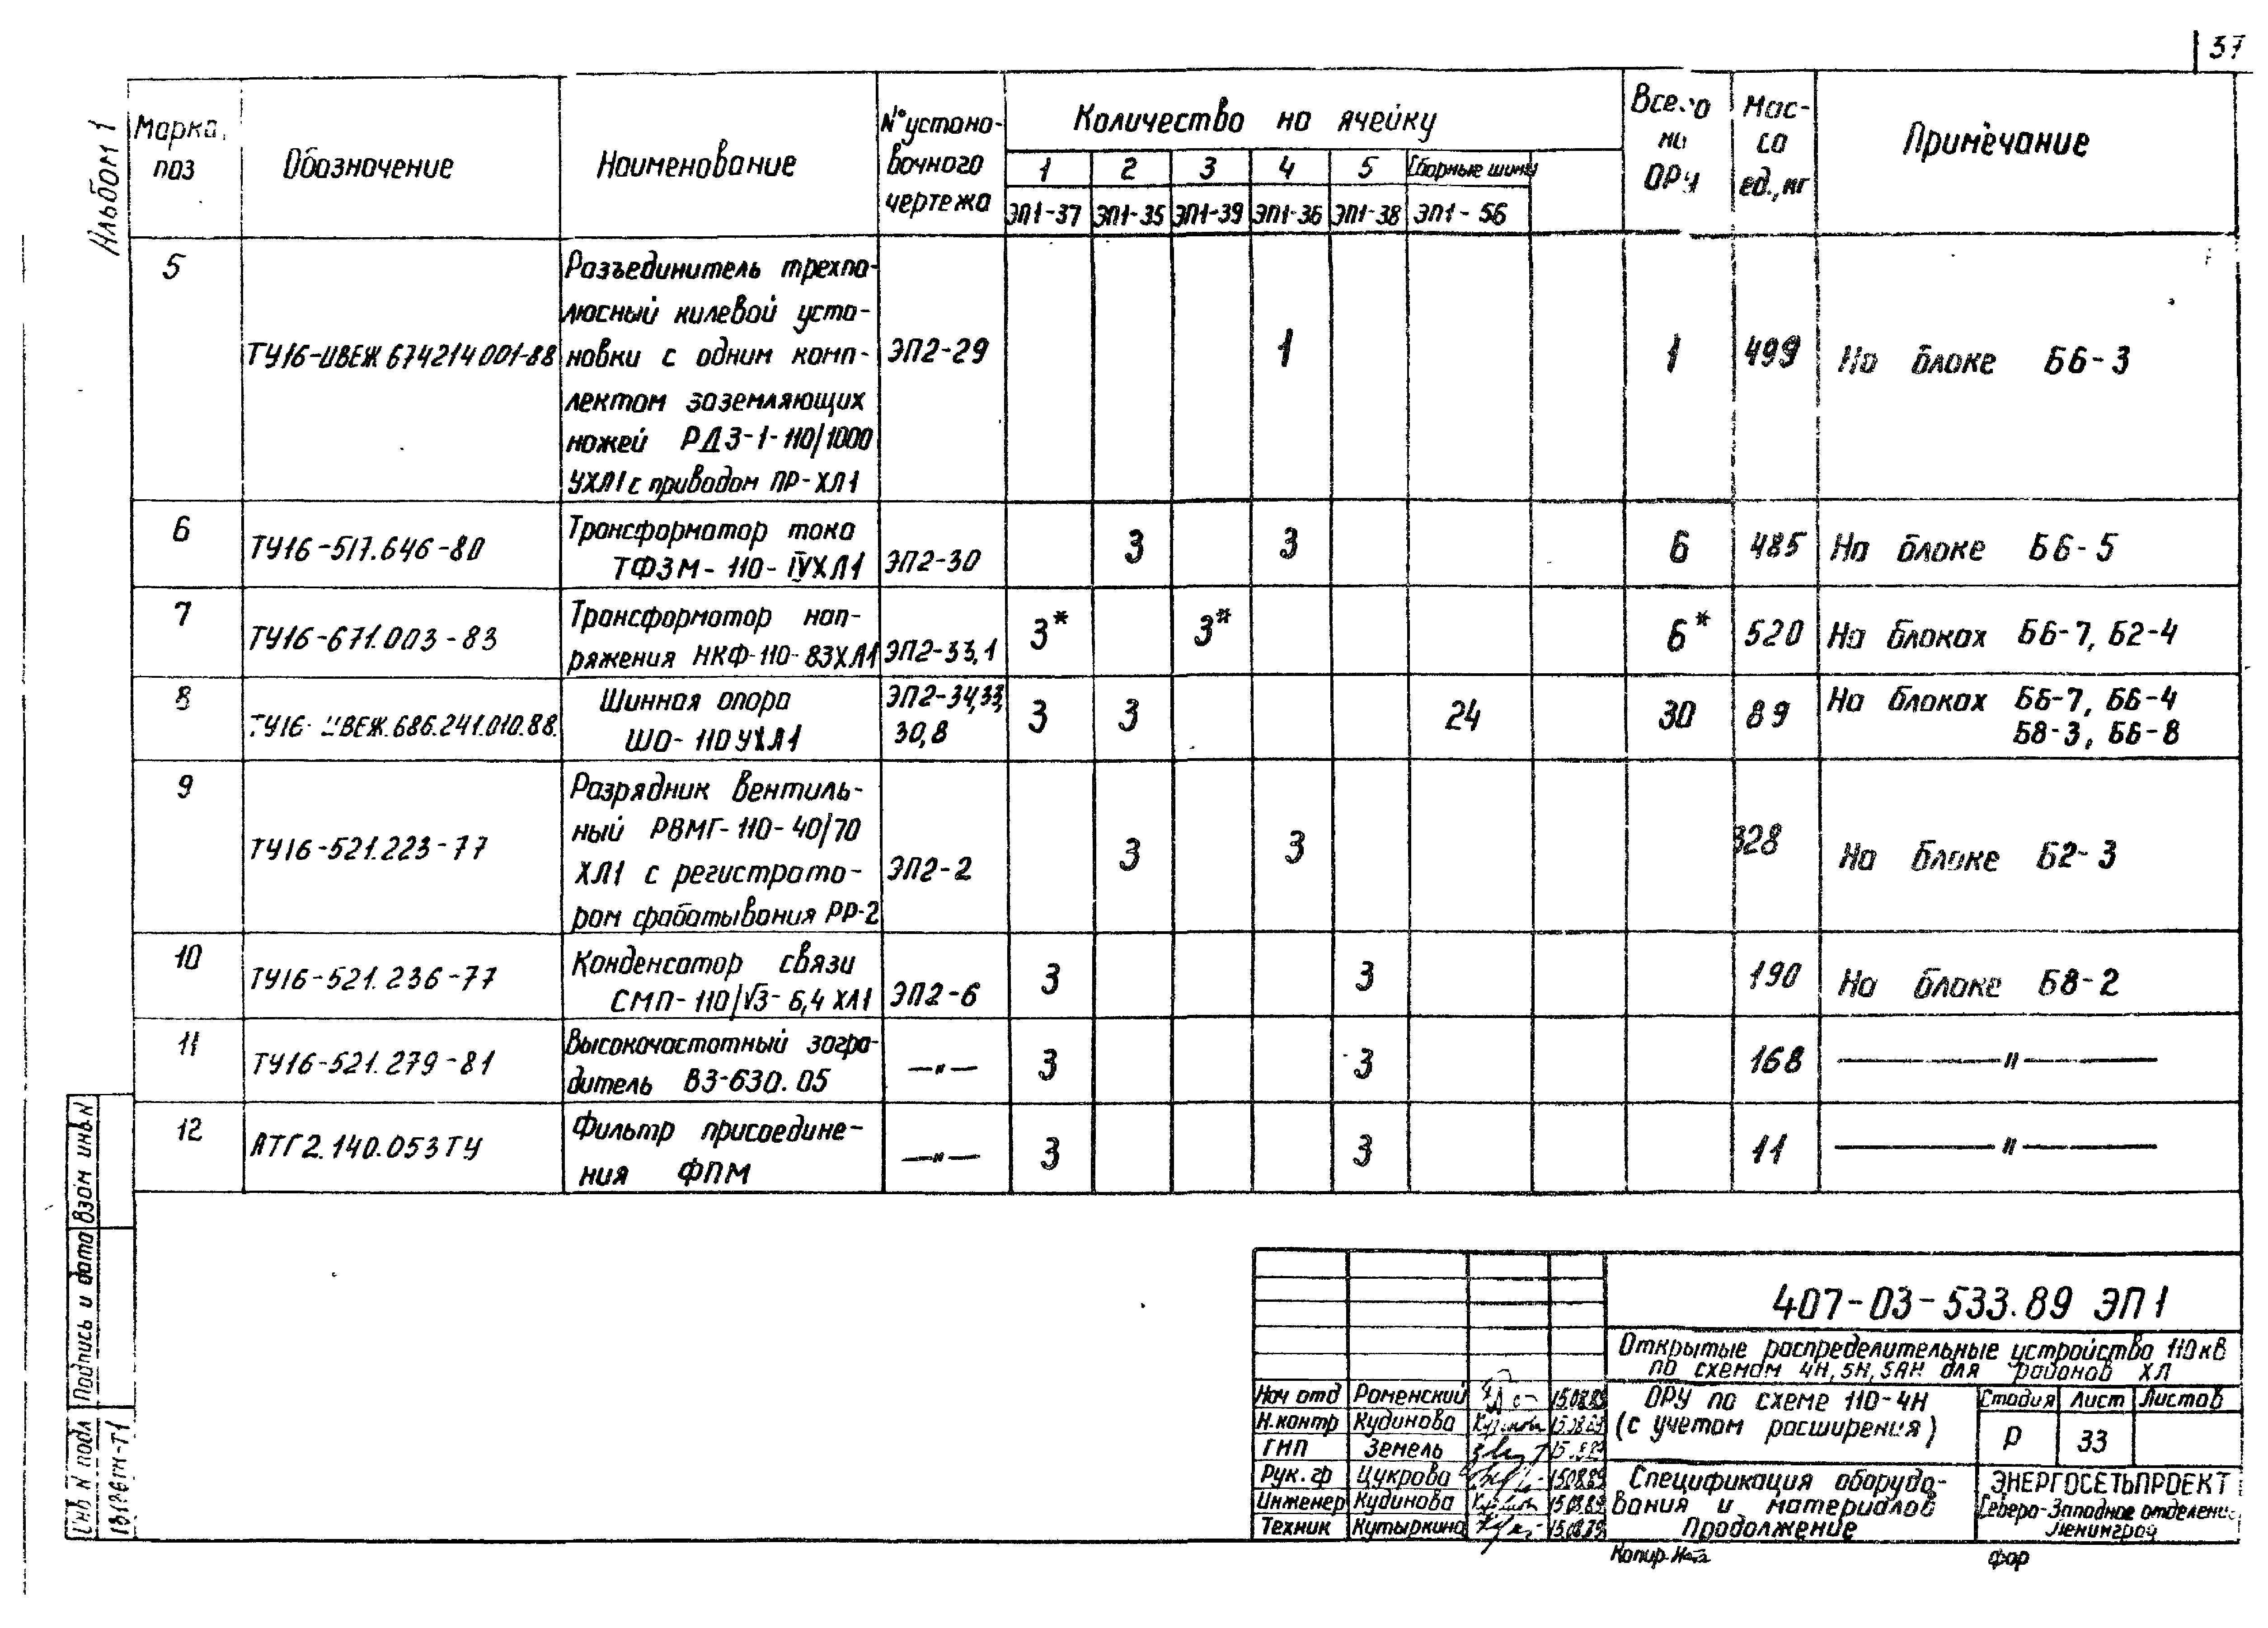 37
Альбом 1
Марка, поз
Обозначение
Наименование
N° устано-
вочного
чертежа
Количество на ячейку
1 2 3 4 5 Сборные шины
ЭП1-37 ЭП1-35 ЭП1-39 ЭП1-36 ЭП1-38 ЭП1-56
Всего
на
ОРУ
Мас-
са
ед., кг
Примечание
5
ТУ16-ИВЕЖ 674214 001-88
Разъединитель трехпо-
люсный килевой уста-
новки с одним комп-
лектом заземляющих
ножей РДЗ-1-110/1000
УХЛ1 с приводом ПР-ХЛ1
ЭП2-29
1 1 499 На блоке Б6-3
6
ТУ16-517.646-80
Трансформатор тока
ТФЗМ-110-IVХЛ1
ЭП2-30
3 3 6 485 На блоке Б6-5
7
ТУ16-671.003-83
Трансформатор нап-
ряжения НКФ-110-83ХЛ1
ЭП2-33,1
3* 3* 6* 520 На блоках Б6-7, Б2-4
8
ТУ16-ИВЕЖ.686.241.010.88.
Шинная опора
ШО-110 УХЛ1
ЭП2-34,33,
30,8
3 3 24 30 89
На блоках Б6-7, Б6-4
Б8-3, Б6-8
9
ТУ16-521.223-77
Разрядник вентиль-
ный РВМГ-110-40/70
ХЛ1 с регистрато-
ром срабатывания РР-2
ЭП2-2
3 3 328 На блоке Б2-3
10
ТУ16-521.236-77
Конденсатор связи
СМП-110/√3-6,4 ХЛ1
ЭП2-6
3 3 190 На блоке Б8-2
11
ТУ16-521.279-81
Высокочастотный загра-
дитель ВЗ-630.05
—"—
3 3 168 —"—
12
АТГ2.140.053 ТУ
Фильтр присоедине-
ния ФПМ
—"—
3 3 11 —"—
Взам инв.N
Подпись и дата
Инв N подл
407-03-533.89 ЭП1
Открытые распределительные устройства 110кВ
по схемам 4Н, 5Н, 5АН для районов ХЛ
Нач отд Роменский 15.08.89
Н.контр Кудинова 15.08.89
ГИП Земель
Рук.гр Цукрова 15.08.89
Инженер Кудинова 15.08.89
Техник Кутыркина 15.08.89
ОРУ по схеме 110-4Н
(с учетом расширения)
Стадия Лист Листов
Р 33
Спецификация оборудо-
вания и материалов
Продолжение
ЭНЕРГОСЕТЬПРОЕКТ
Северо-Западное отделение
Ленинград
Копир
фор